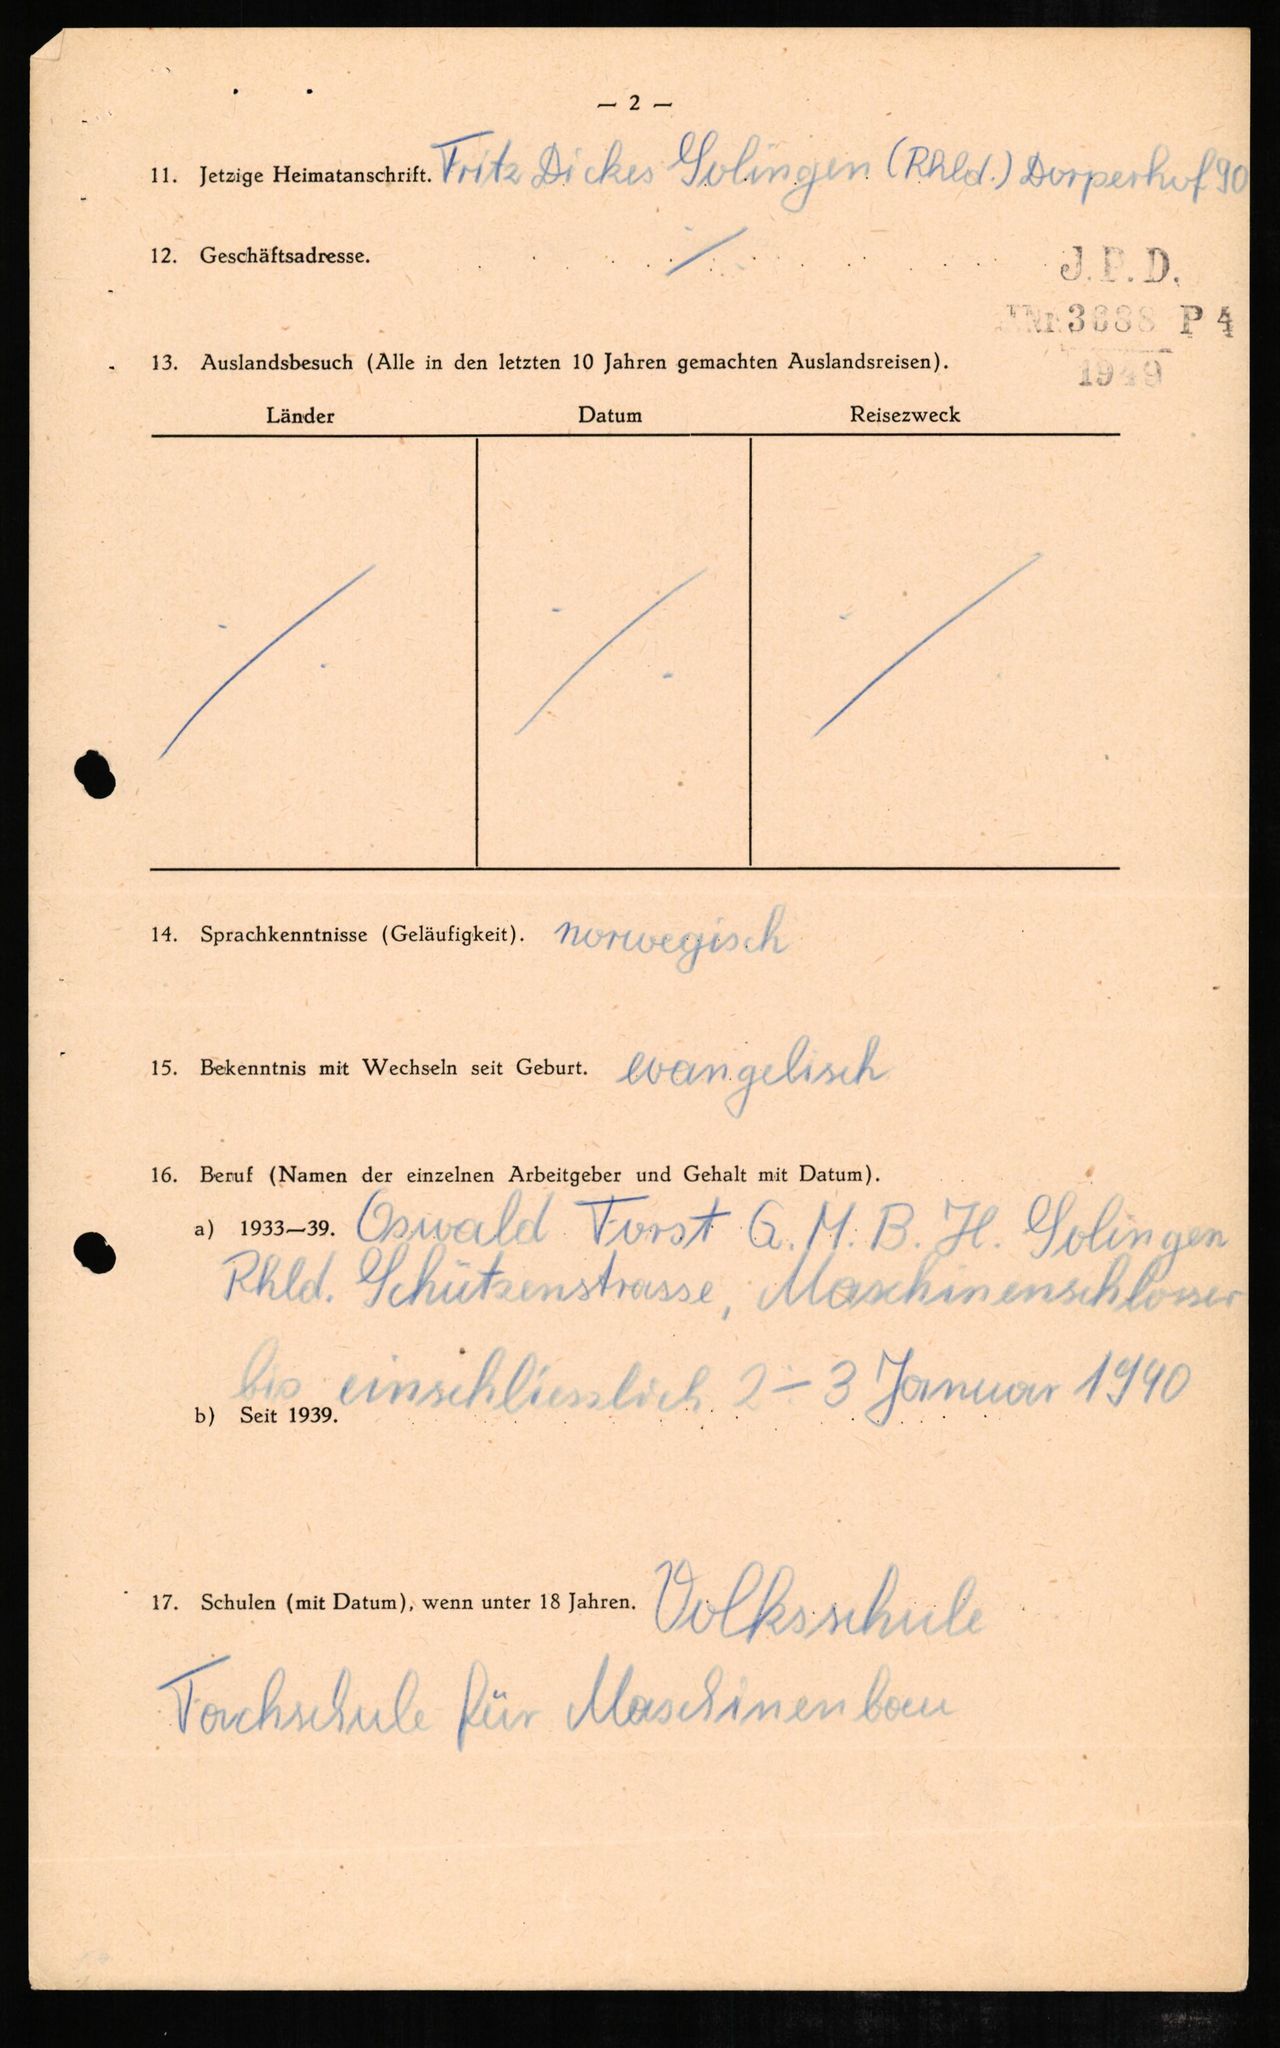 — 2 —
11. Jetzige Heimatanschrift. Fritz Dickes Solingen (Rhld.) Dorperhof 90
12. Geschäftsadresse. /
J.P.D.
JNr. 3688 P 4
1949
13. Auslandsbesuch (Alle in den letzten 10 Jahren gemachten Auslandsreisen).
Länder Datum Reisezweck
14. Sprachkenntnisse (Geläufigkeit). norwegisch
15. Bekenntnis mit Wechseln seit Geburt. evangelisch
16. Beruf (Namen der einzelnen Arbeitgeber und Gehalt mit Datum).
a) 1933—39. Oswald Forst G.M.B.H. Solingen
Rhld. Schützenstrasse, Maschinenschlosser
bis einschliesslich 2 - 3 Januar 1940
b) Seit 1939.
17. Schulen (mit Datum), wenn unter 18 Jahren. Volksschule
Fachschule für Maschinenbau